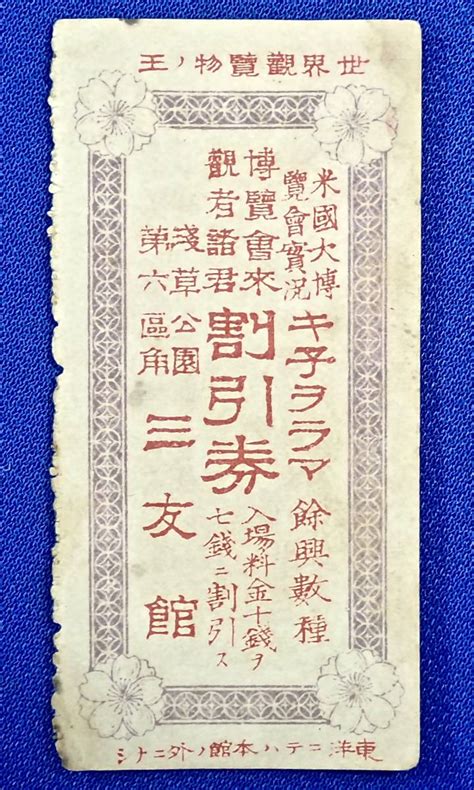 世界觀覽物ノ王
米國大博
覽會實況
キ子ヲラマ
餘興數種
博覽會來
觀者諸君
割引券
入場料金十錢ヲ
七錢ニ割引ス
淺草公園
第六區角
三友館
東洋ニテハ本館ノ外ニナシ